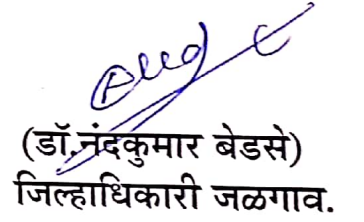 (डॉ.नंदकुमार बेडसे)
जिल्हाधिकारी जळगाव.